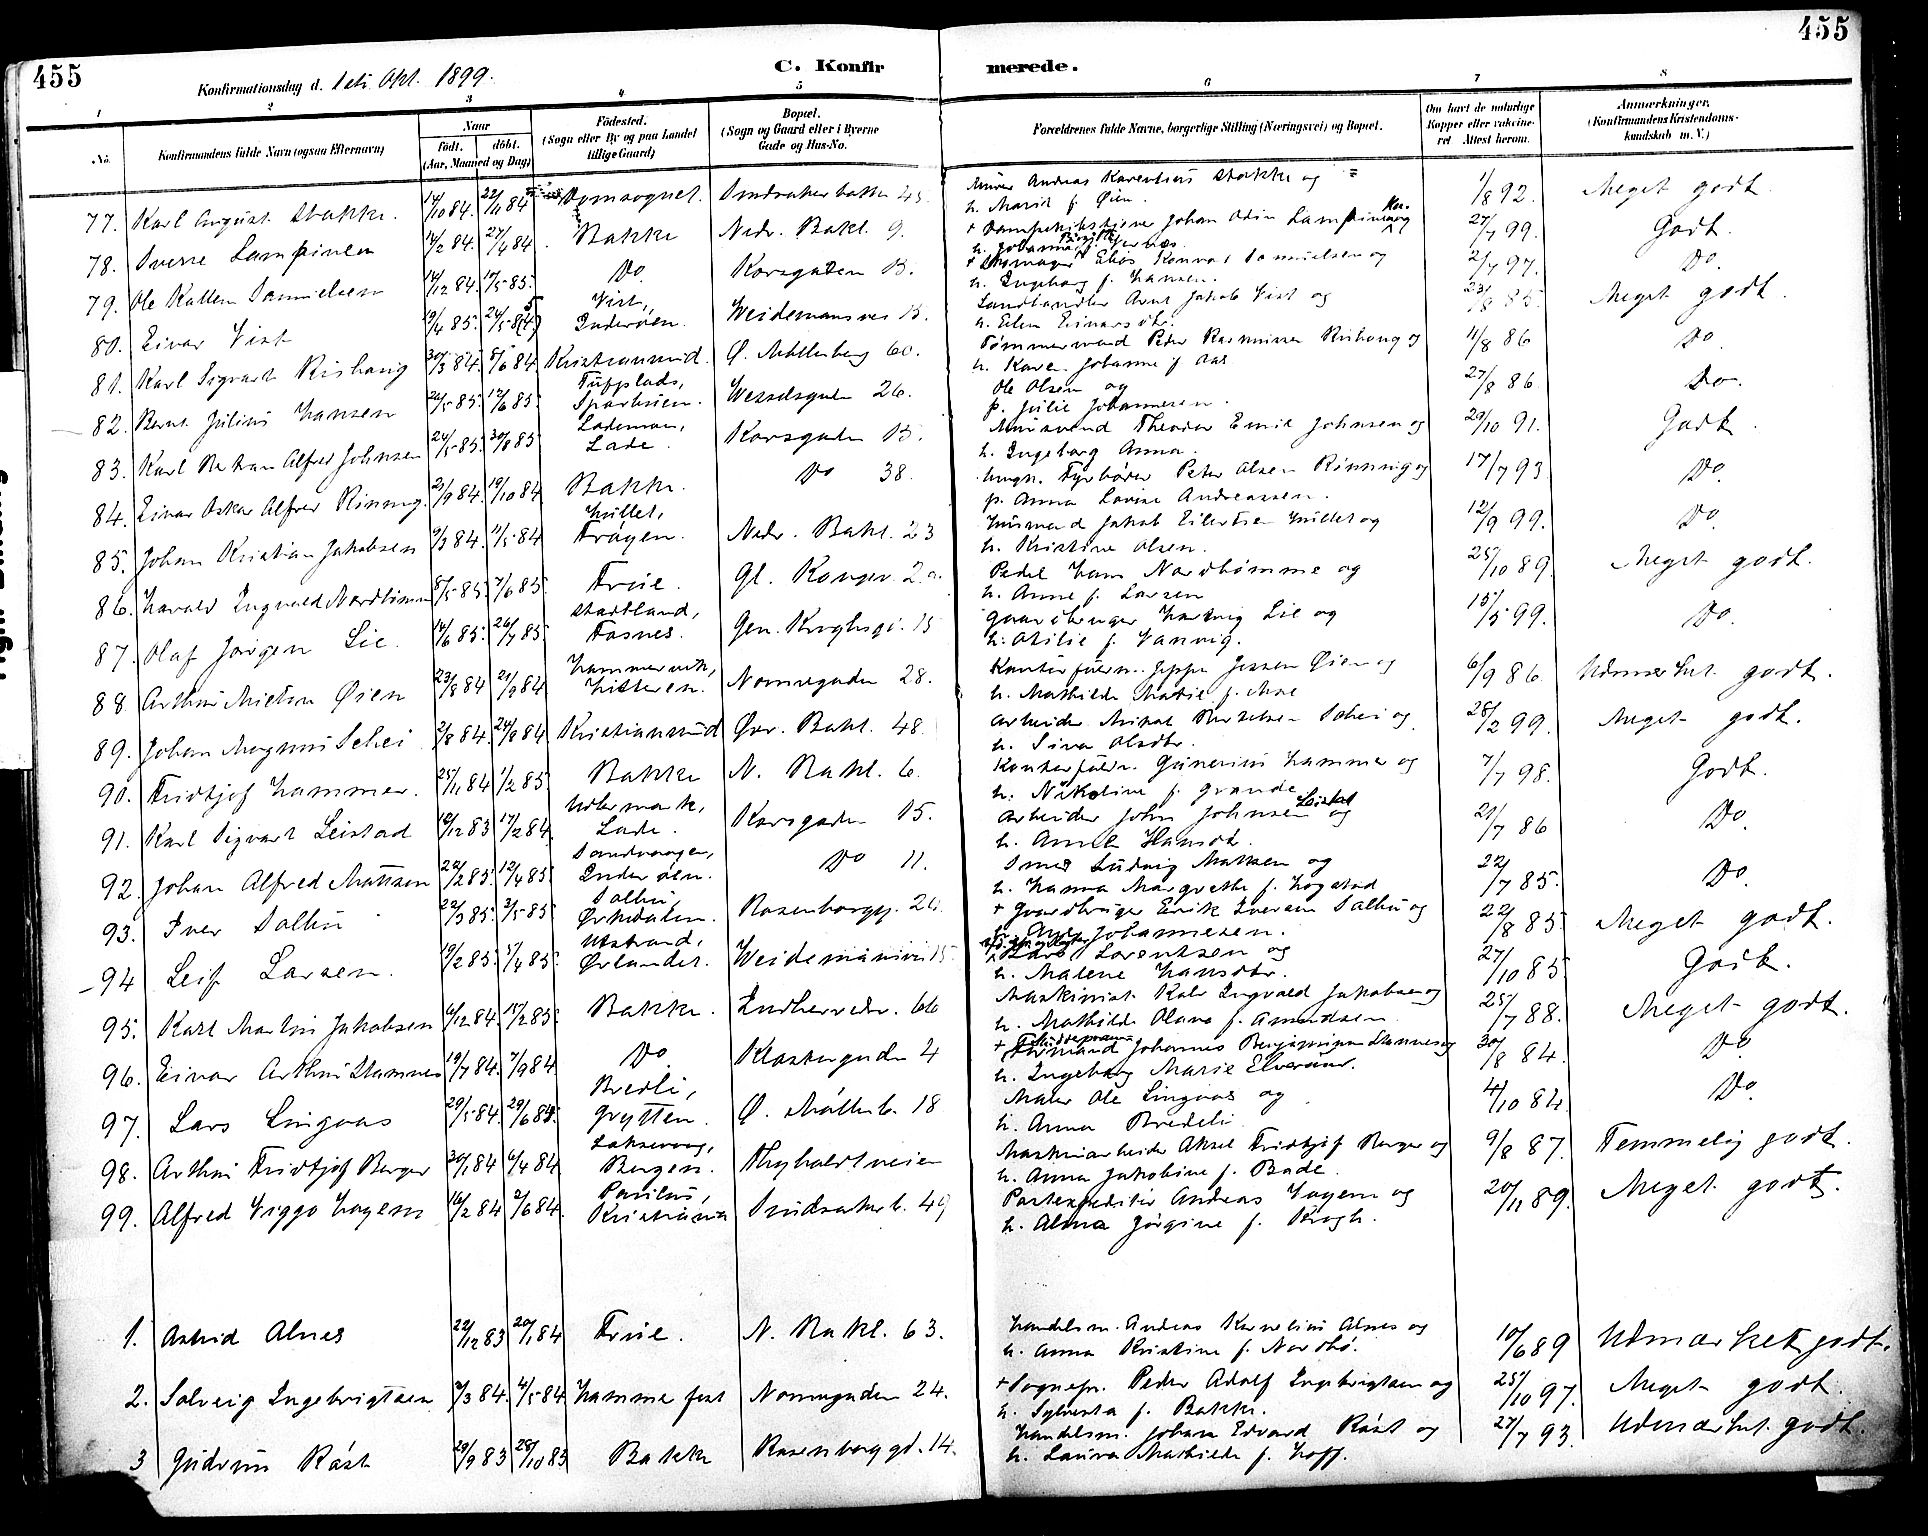 455
455
Konfirmationsdag d. 1ste Okt. 1899.
C. Konfirmerede.
1 2 3 4 5 6 7 8
No. Konfirmandens fulde Navn (ogsaa Efternavn) Naar født. døbt. (Aar, Maaned og Dag) Fødested. (Sogn eller By og paa Landet tillige Gaard) Bopæl. (Sogn og Gaard eller i Byerne Gade og Hus-No. Forældrenes fulde Navne, borgerlige Stilling (Næringsvei) og Bopæl. Om havt de naturlige Kopper eller vaksineret. Attest herom. Anmærkninger, (Konfirmandens Kristendomskundskab m. V.)
77. Karl August Stakke. 14/10 84. 22/11 84 Domsognet. Sindsakerbakken 45. Murer Andreas Karentius Stakke og h. Marit f. Øien. 1/8 92. Meget godt.
78. Sverre Lampinen 14/2 84. 27/4 84 Bakke Nedr. Bakl. 9. Johan Odin Lampinen og h. Johanna 27/7 99. Godt.
79. Ole Kallem Danielsen 14/12 84. 10/5 85. Do Korsgaden 13. + Skomager Elias Konrad Danielsen og h. Ingeborg f. Hansen. 2/7 97. Do
80. Einar Vist 19/4 85. 24/5 85 Vist, Inderøen. Weidemansvei 13. Landhandler Arnt Jakob Vist og h. Elen Einarsdtr. 23/8 85. Meget godt.
81. Karl Sigvart Rishaug 30/3 84. 8/6 84 Kristiansund. Ø. Møllenberg 60. Tømmermand Peder Rasmussen Rishaug og h. Karen Johanne f. Aas 11/8 86 Do
82. Bernt Julius Hansen 26/5 85. 14/6 85. Sparbuen. Wesselsgaden 26. Ole Olsen og p. Julie Johannesen. 27/8 86 Do.
83. Karl Alfred Johnsen 24/5 85. 30/8 85 Lademoen, Lade. Korsgaden 13. Theodor Emil Johnsen og h. Ingeborg Anna. 29/10 91. Godt.
84. Einar Oskar Alfred Rinnig. 21/9 84. 19/10 84 Bakke. Do 38. ungk. Fyrbøder Peter Olsen Rinnnig og p. Anna Lovise Andreassen. 17/7 93 Do.
85. Johan Kristian Jakobsen 9/3 84. 11/5 84 Hillet, Frøyen. Nedr. Bakl. 23 Husmand Jakob Eilertsen Hillet og h. Kristine Olsen. 12/9 99. Do.
86. Harald Ingvald Nordhømme 8/5 85. 7/6 85. Frue. Gl. Kongev. 2a. Pedel Hans Nordhømme og h. Anne f. Larsen 25/10 89. Meget godt.
87. Olaf Jørgen Lie. 14/6 85. 26/7 85 Stadtland, Fosnes. Gen. Kroghsg. 15 Gaardbruger Hartvig Lie og h. Otilie f. Vannvig. 15/5 99. Do.
88. Arthur Øien 23/8 84 21/9 84 Hammervik, Hitteren. Nonnegaden 28. Kontorfuldm. Jeppe Jessen Øien og h. Mathilde Marie f. Moe 6/9 86. Udmerket godt.
89. Johan Magnus Schei 2/8 84. 24/8 84 Kristiansund Øvr. Bakl. 48. Arbeider Schei og h. Sina Olsdtr. 28/2 99. Meget godt.
90. Fridtjof Hammer. 25/11 84 1/2 85. Bakke N. Bakl. 6. Kontorfuldm. Gunerius Hammer og h. Nikoline f. Grande 7/7 98. Godt.
91. Karl Sigvart Leistad 19/12 83 17/2 84. Lade. Korsgaden 15. Arbeider John Johnsen Leistad og h. Anne Hansdt. 21/7 86 Do
92. Johan Alfred Matsen 22/2 85. 12/4 85 Sandvaagen, Inderøen. Do 11. Smed Ludvig Matsen og h. Hanna Margrethe f. Hogstad 22/7 85. Do.
93. Iver Solbu 22/3 85. 3/5 85 Solbu, Orkedalen. Rosenborgg. 24. + Gaardbruger Erik Iversen Solbu og h. Johannesen. 22/8 85. Meget godt.
94 Leif Larsen. 19/2 85. 5/4 85. Utstrand, Ørlandet. Weidemansvei 15. Lars Lorentsen og h. Malene Hansdtr. 27/10 85 Godt.
95. Karl Martin Jakobsen 6/12 84. 15/2 85. Bakke. Indherredsv. 66 Maskinist Karl Ingvald Jakobsen og h. Mathilde Olava f. Amundsen. 25/7 88. Meget godt.
96. Einar Arthur Stamnes 19/7 84. 7/9 84 Do Klostergaden 4 Johannes Benjaminsen Stamnes og h. Ingeborg Marie Elverum. 30/8 84. Do
97. Lars Lingaas 29/5 84. 29/6 84. Bredli, Grytten. Ø. Møllenb. 18 Maler Ole Lingaas og h. Anna Bredeli 4/10 84. Do
98. Arthur Fridtjof Berger 30/1 84 6/4 84 Laksevaag, Bergen. Thyholdtveien Maskinarbeider Aksel Fridtjof Berger og h. Anna Jakobine f. Bade. 9/8 87. Temmelig godt.
99. Alfred Viggo Hagem 16/2 84 2/6 84. Paulus, Kristiania Sindsakerb. 49 Postexpeditør Andreas Hagem og h. Alma Jørgine f. Krogh. 20/11 89. Meget godt.
1. Astrid Alnes 22/12 83 20/1 84 Frue. N. Bakl. 63. Handelsm. Andreas Kornelius Alnes og h. Anna Kristine f. Nordbø. 10/6 89 Udmærket godt.
2. Solveig Ingebrigtsen 3/3 84. 4/5 84. Hammerfest Nonnegaden 24. + Sognepr. Peder Adolf Ingebrigtsen og h. Sylvesta f. Bakke. 25/10 97. Meget godt.
3 Gudrun Røst 29/9 83 28/10 83 Bakke Rosenborggd. 14. Handelsm. Johan Edvard Røst og h. Laura Mathilde f. Hoff. 27/7 93. Udmærket godt.